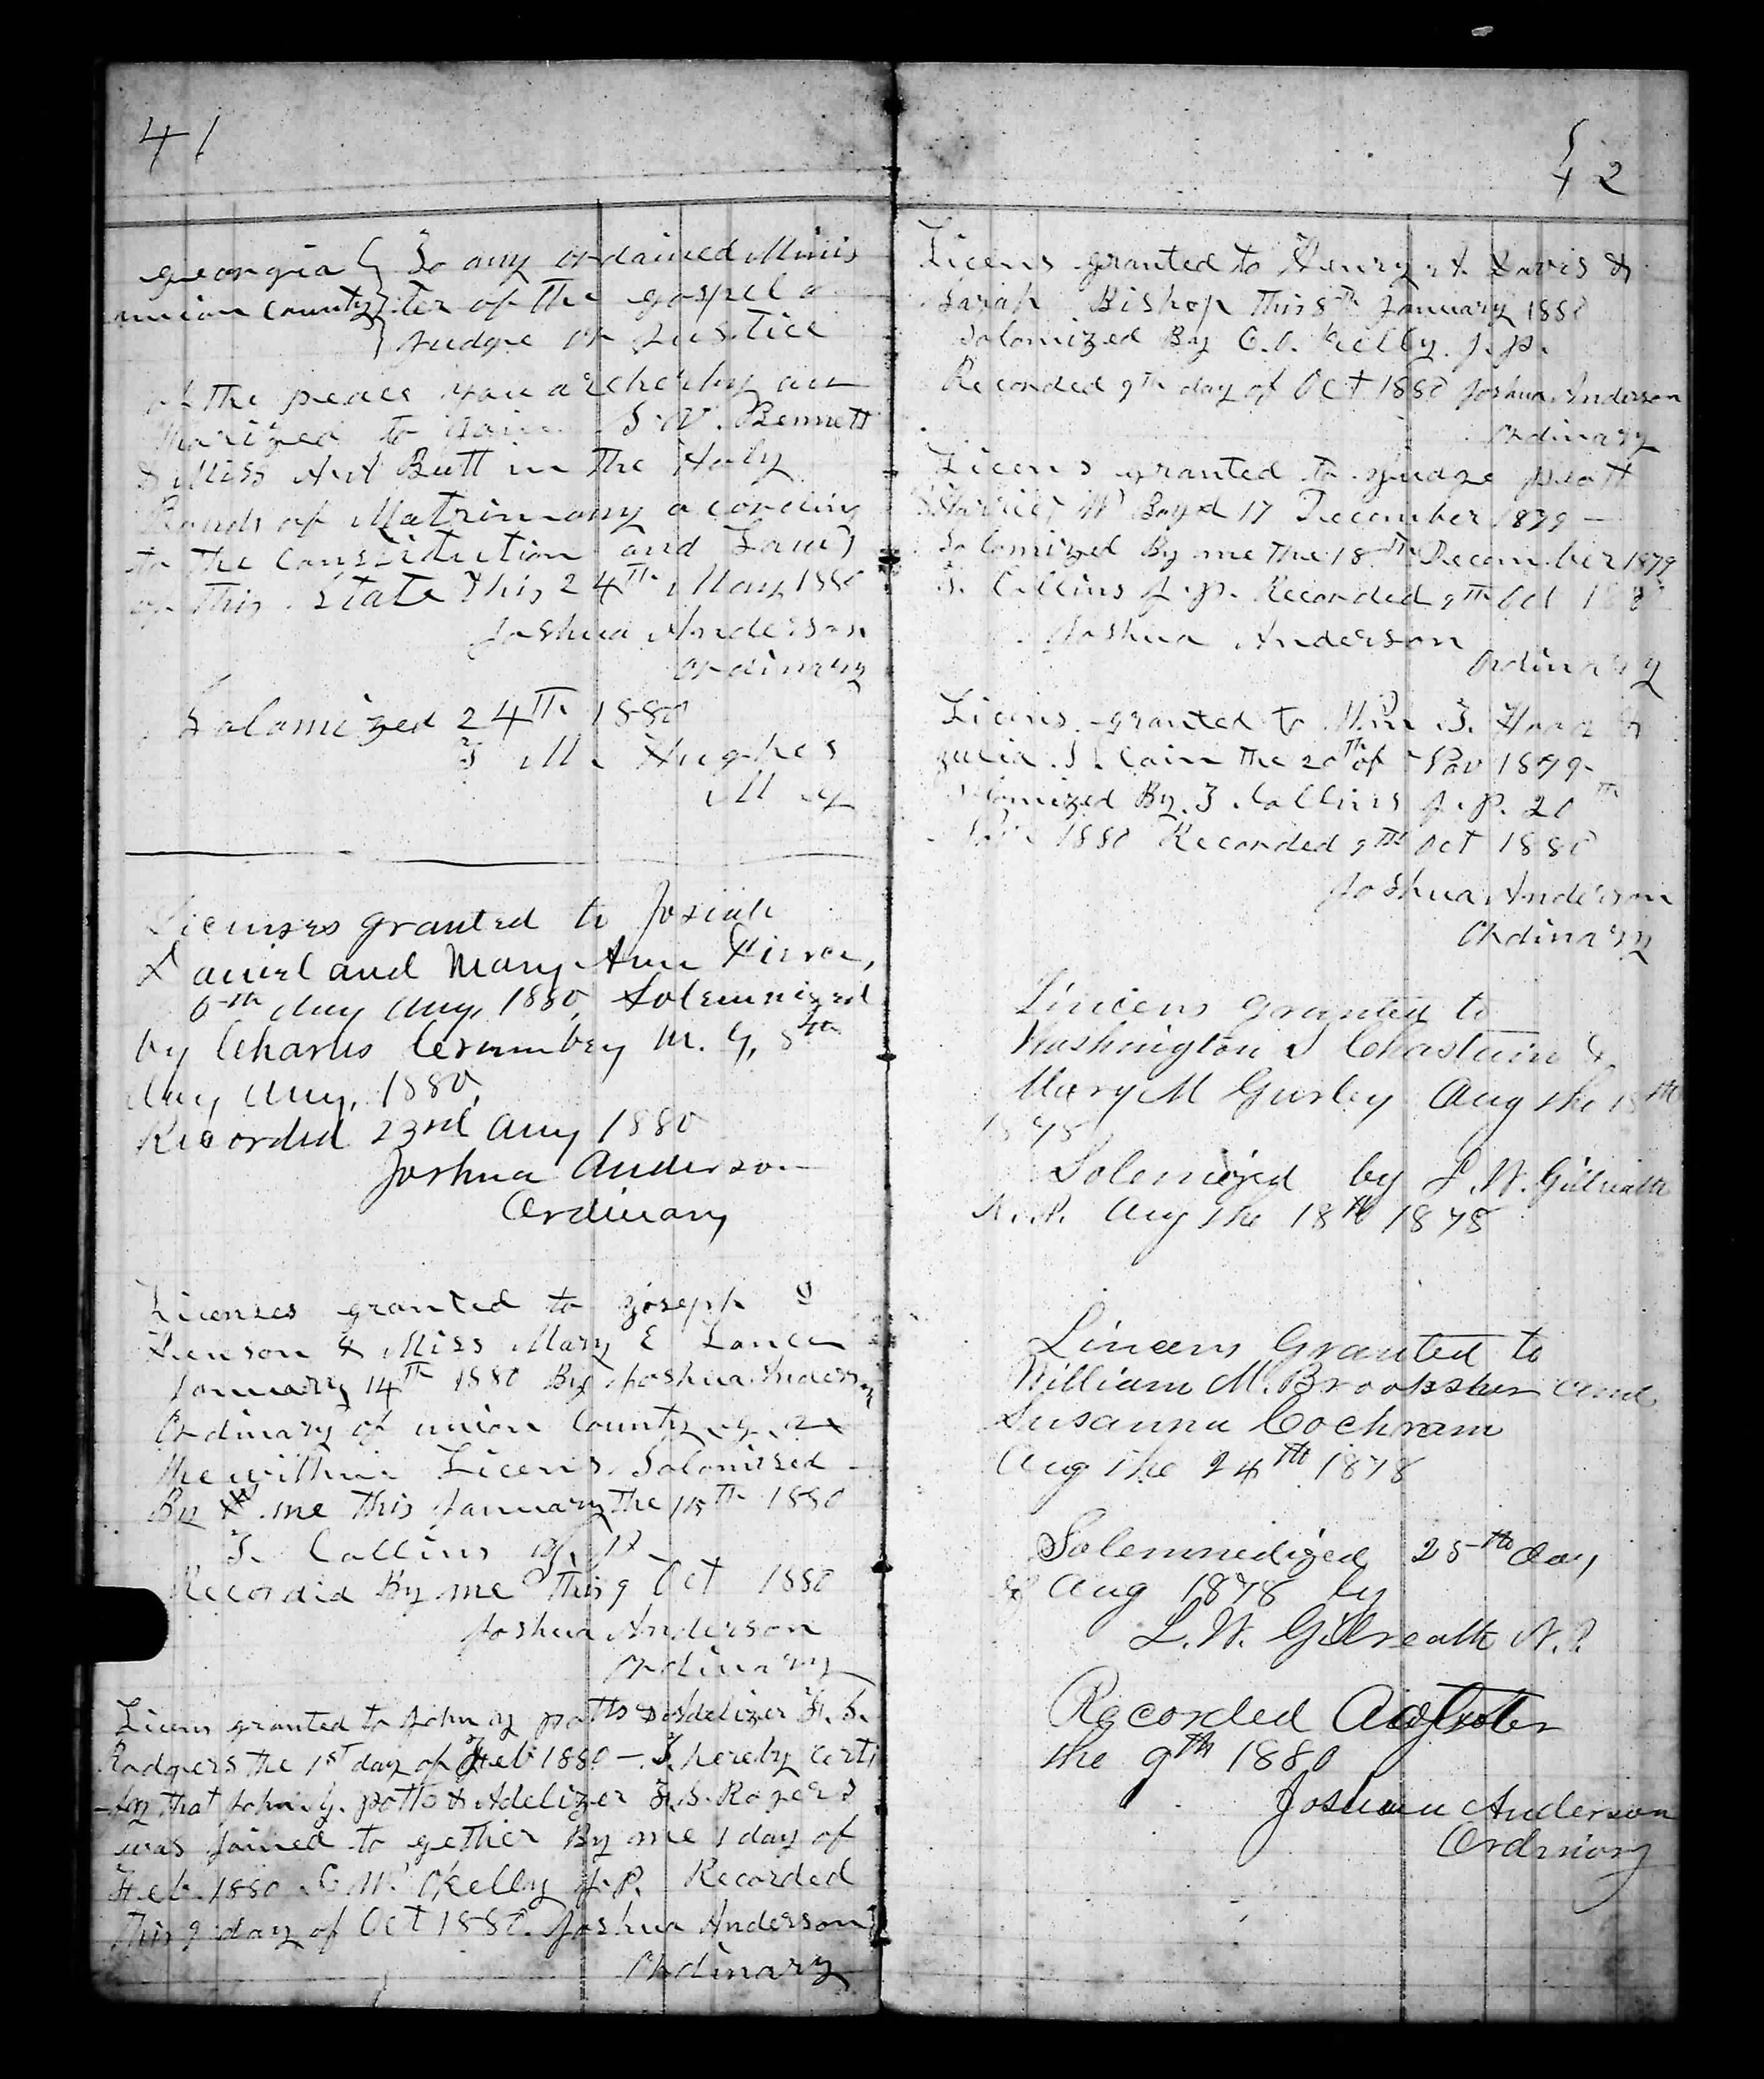 41
Georgia } To any ordained Minis
union County } ter of the gospel or
Judge or Justice
of the peace you are hereby au
thorized to Join S. W. Bennett
& Miss A A Butt in the Holy
Bonds of Matrimony acording
to the Constitution and Laws
of this State this 24th May 1880
Joshua Anderson
Ordinary
Solamized 24th 1880
T M. Hughes
M G
Licenses granted to Josiah
Daniel and Mary Ann
6th day Aug, 1880, Solemnized
by Charles Crumbey M. G, 8th
day Aug, 1880,
Recorded 23rd Aug 1880
Joshua Anderson
Ordinary
Licenses granted to Joseph
Henson & Miss Mary E Lance
January 14th 1880 By Joshua Anderson
Ordinary of union County ga
the within Licens Solomised
By me this January the 15th 1880
T. Collins J. P.
Recordid By me this 9 Oct 1880
Joshua Anderson
Ordinary
Licens granted to John G potts & Adelizer F. S.
Rodgers the 1st day of Feb 1880 — I hereby certi
-fy that John G. potts & Adelizer F. S. Rogers
was Joined to gether By me 1 day of
Feb. 1880 C W. OKelly J. P. Recorded
this 9 day of Oct 1880. Joshua Anderson
Ordinary
42
Licens granted to Henry A. Davis &
Sarah Bishop this 8th January 1880
Solomized By C. O. Kelly. J. P.
Recorded 9th day of Oct 1880 Joshua Anderson
Ordinary
Licens granted to Judge pratt
& Harriet W Boyd 17 December 1879 —
Solomized By me the 18th December 1879
T. Collins J. P. Recorded 9th Oct 1880
Joshua Anderson
Ordinary
Licens granted to Wm T. Hood &
Julia. S. Cain the 20th of Nov 1879
Solomized By. T. Collins J. P. 20th
Nov 1880 Recorded 9th Oct 1880
Joshua Anderson
Ordinary
Lincens granted to
Washington S Chastain &
Mary M Gurley Aug the 18th
1878
Solemized by L. W. Gillreath
N. P. Aug the 18th 1878
Lincens Granted to
William M. Brooksher and
Susanna Cochram
Aug the 24th 1878
Solemnedized 25th day
of Aug 1878 by
L. W. Gilreath N. P.
Recorded
the 9th 1880
Joshua Anderson
Ordinary